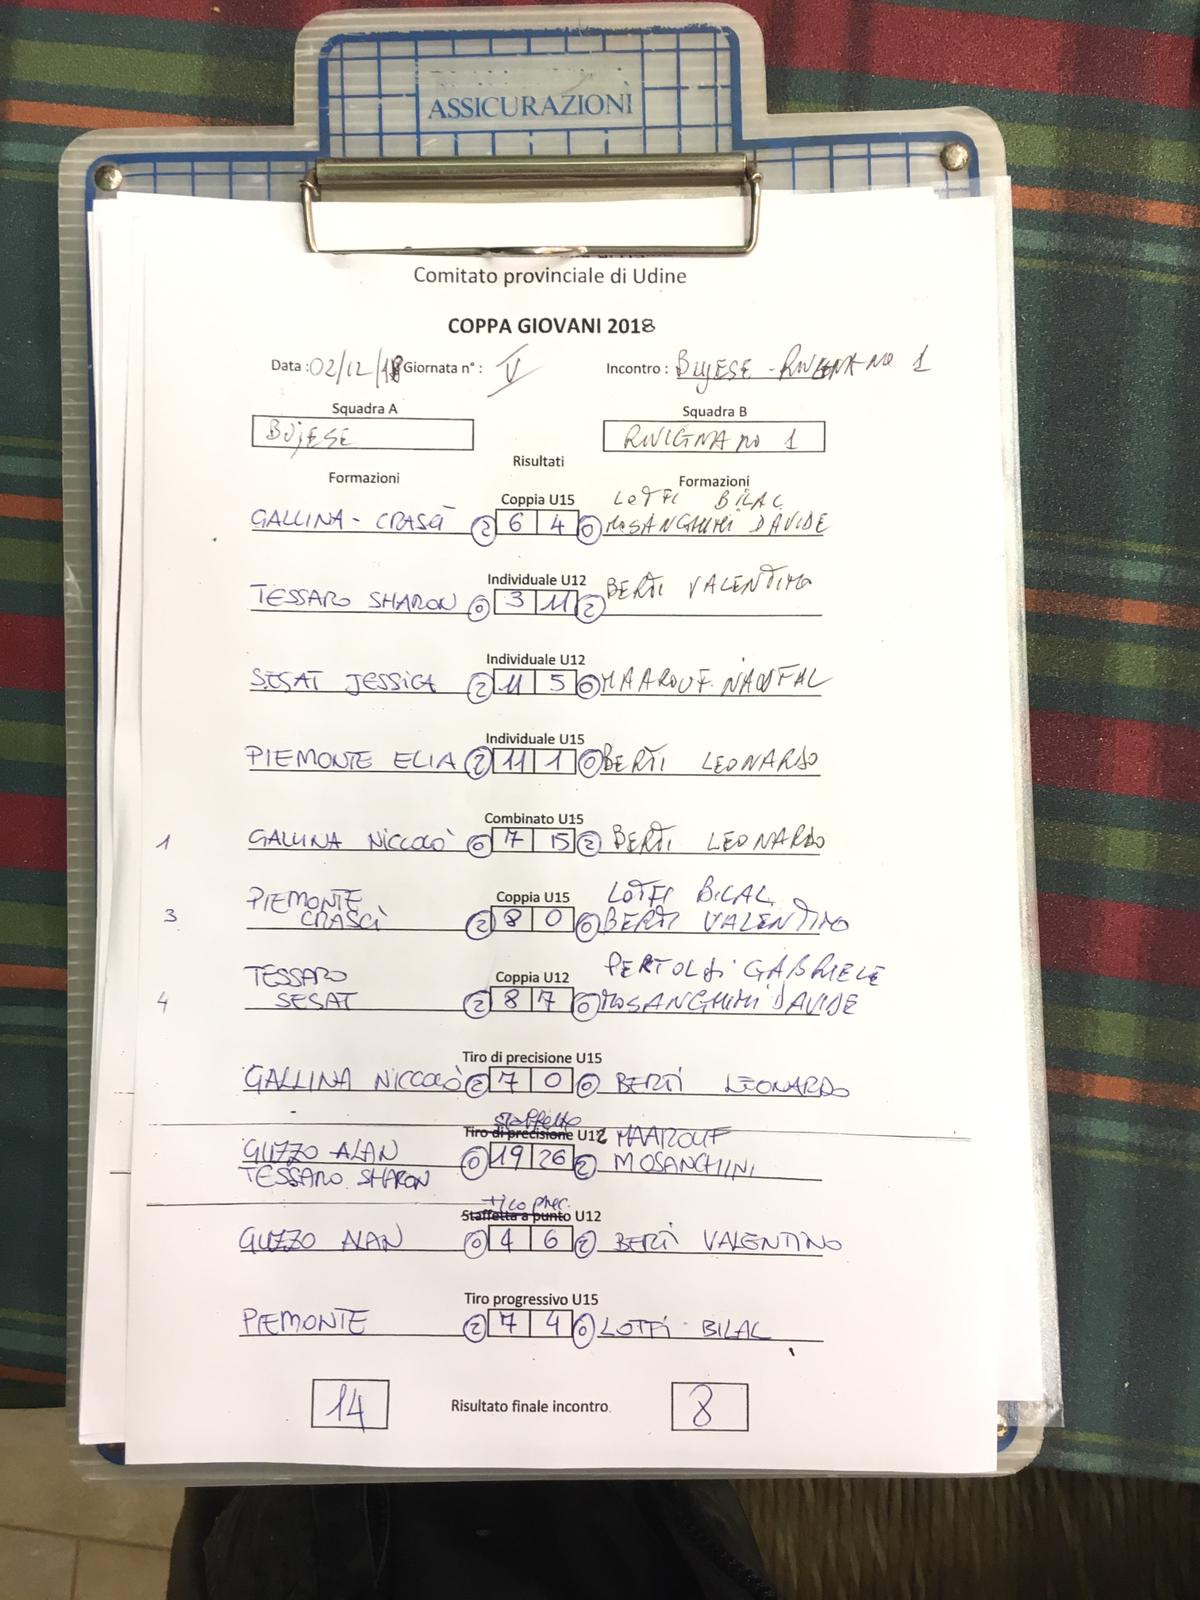 ASSICURAZIONI
Comitato provinciale di Udine
COPPA GIOVANI 2018
Data : 02/12/18 Giornata n° : V Incontro : BUJESE - RIVIGNANO 1
Squadra A Squadra B
BUJESE RIVIGNANO 1
Risultati
Formazioni Formazioni
Coppia U15 LOTFI BILAL
GALLINA - CRASCÌ 2 6 4 0 MOSANGHINI DAVIDE
Individuale U12
TESSARO SHARON 0 3 11 2 BERTI VALENTINO
Individuale U12
SESAT JESSICA 2 11 5 0 MAAROUF NAOUFAL
Individuale U15
PIEMONTE ELIA 2 11 1 0 BERTI LEONARDO
Combinato U15
1 GALLINA NICCOLÒ 0 7 15 2 BERTI LEONARDO
PIEMONTE Coppia U15 LOTFI BILAL
3 CRASCÌ 2 8 0 0 BERTI VALENTINO
TESSARO Coppia U12 PERTOLDI GABRIELE
4 SESAT 2 8 7 0 MOSANGHINI DAVIDE
Tiro di precisione U15
GALLINA NICCOLÒ 2 7 0 0 BERTI LEONARDO
staffetta
Tiro di precisione U12 MAAROUF
GUZZO ALAN 0 19 26 2 MOSANCHINI
TESSARO SHARON
tiro prec.
Staffetta a punto U12
GUZZO ALAN 0 4 6 2 BERTI VALENTINO
Tiro progressivo U15
PIEMONTE 2 7 4 0 LOTFI BILAL
14 Risultato finale incontro. 8